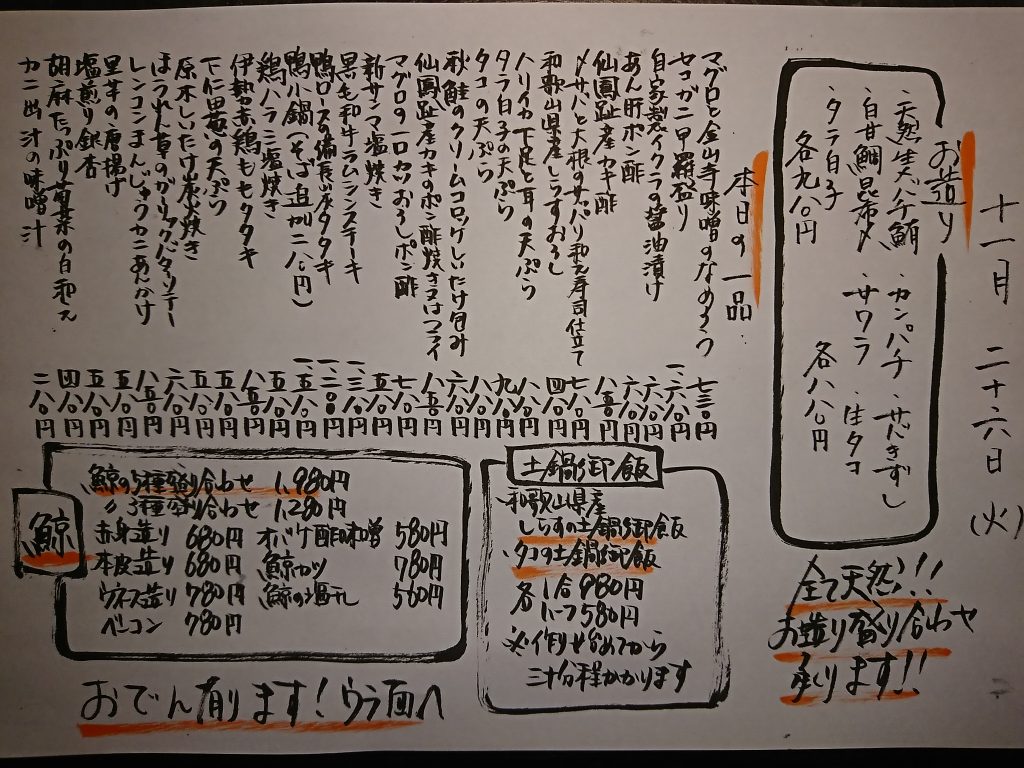 十一月 二十六日(火)
お造り
・天然生メバチ鮪 ・カンパチ ・サンキずし
・白甘鯛昆布〆 ・サワラ ・生タコ
・タラ白子 各八八〇円
各九八〇円
全て天然!!
お造り盛り合わせ
承ります!!
本日の一品
マグロと金山寺味噌のなめろう 七三〇円
セコガニ甲羅盛り 一、六八〇円
自家製イクラの醤油漬け 六八〇円
あん肝ポン酢 六八〇円
仙鳳趾産カキ酢 八五〇円
〆サバと大根のサッパリ和え寿司仕立て 七八〇円
和歌山県産しらすおろし 四八〇円
ハリイカ下足と耳の天ぷら 八八〇円
タラ白子の天ぷら 九八〇円
タコの天ぷら 八八〇円
秋鮭のクリームコロッケしいたけ包み 六八〇円
仙鳳趾産カキのポン酢焼き又はフライ 八五〇円
マグロの一口カツおろしポン酢 七八〇円
新サンマ塩焼き 五八〇円
黒毛和牛ラムシンステーキ 一、三八〇円
鴨ロースの備長炭タタキ 一、二〇〇円
鴨小鍋(そば追加二八〇円) 一、五五〇円
鶏ハラミ塩焼き 八五〇円
伊勢赤鶏ももタタキ 五八〇円
下仁田葱の天ぷら 五八〇円
原木しいたけ炭火焼き 六八〇円
ほうれん草のガーリックバターソテー 八五〇円
レンコンまんじゅうカニあんかけ 五八〇円
里芋の唐揚げ 五八〇円
塩煎り銀杏 五八〇円
胡麻たっぷり春菊の白和え 四八〇円
カニ出汁の味噌汁 二八〇円
土鍋御飯
・和歌山県産
しらすの土鍋御飯
・タコの土鍋御飯
各 1合 980円
ハーフ 580円
※作り始めてから
二十分程かかります
鯨
鯨の5種盛り合わせ 1,980円
〃 3種盛り合わせ 1,280円
赤身造り 680円 オバケ酢味噌 580円
本皮造り 680円 鯨カツ 780円
ウネス造り 780円 鯨の塩干し 560円
ベーコン 780円
おでん有ります!ウラ面へ